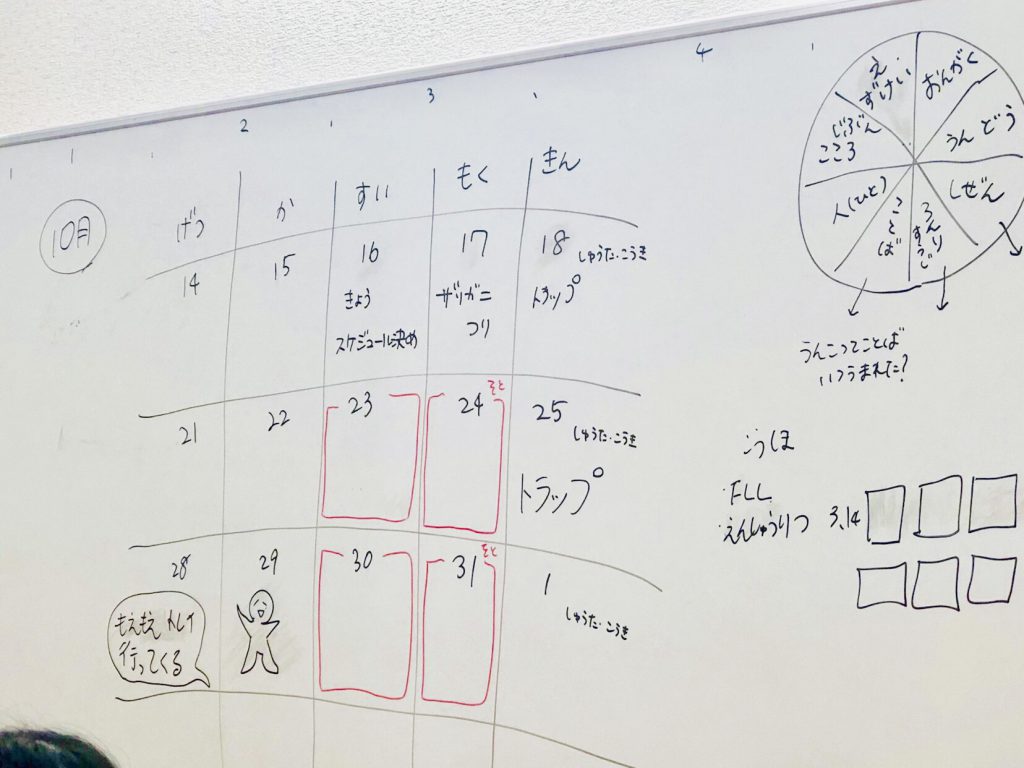 1 2 3 4
10月
げつ か すい もく きん
14 15 16 17 18 しゅうた・こうき
きょう ザリガニ トラップ
スケジュール決め つり
21 22 23 24 そと 25
しゅうた・こうき
トラップ
28 29 30 31 そと 1
しゅうた・こうき
もえもえ トイレ
行ってくる
え
ずけい
おんがく
うんどう
しぜん
ことば
人(ひと)
じぶん
こころ
うんこってことば
いつうまれた?
こうほ
・FLL
・えんしゅうりつ 3.14